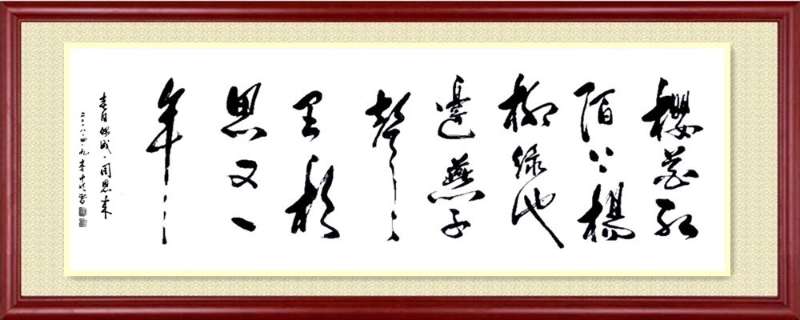 櫻花红
陌上楊
柳绿池
邊燕子
聲々
里相
思又一
年
春日偶成·周恩来